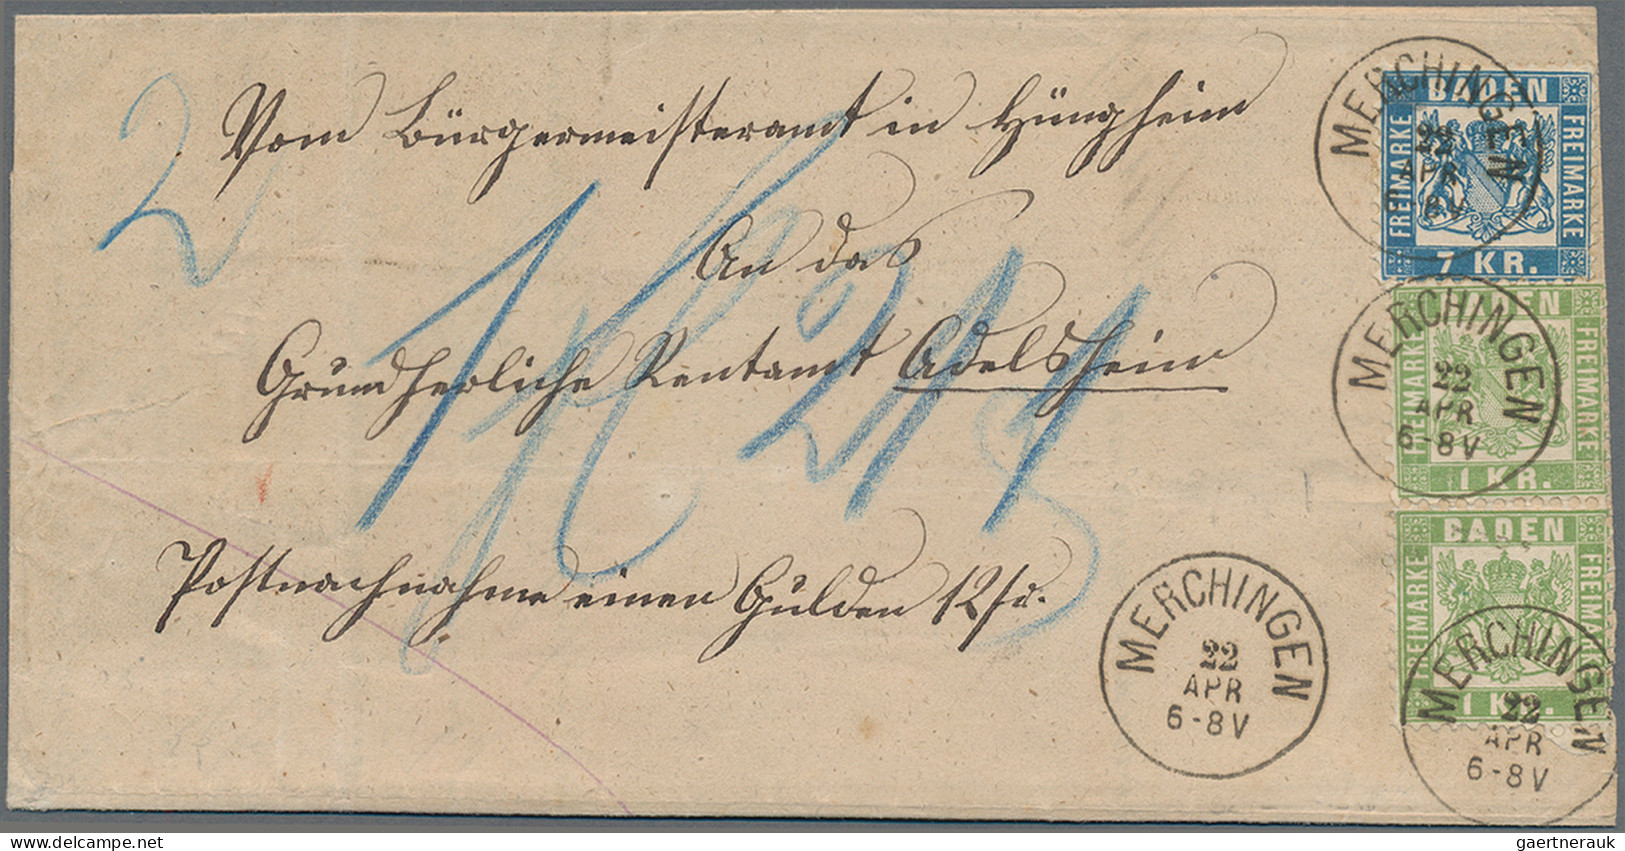 Vom Bürgermeisteramt in Hüngheim
An das
Grundherrliche Rentamt Adelsheim
Postnachnahme einen Gulden 12 kr.
2
MERCHINGEN
22
APR
6-8V
BADEN
FREIMARKE
FREIMARKE
7 KR.
MERCHINGEN
22
APR
8V
BADEN
FREIMARKE
FREIMARKE
1 KR.
MERCHINGEN
22
APR
6-8V
BADEN
FREIMARKE
FREIMARKE
1 KR.
MERCHINGEN
22
APR
6-8V
gaertnerauk